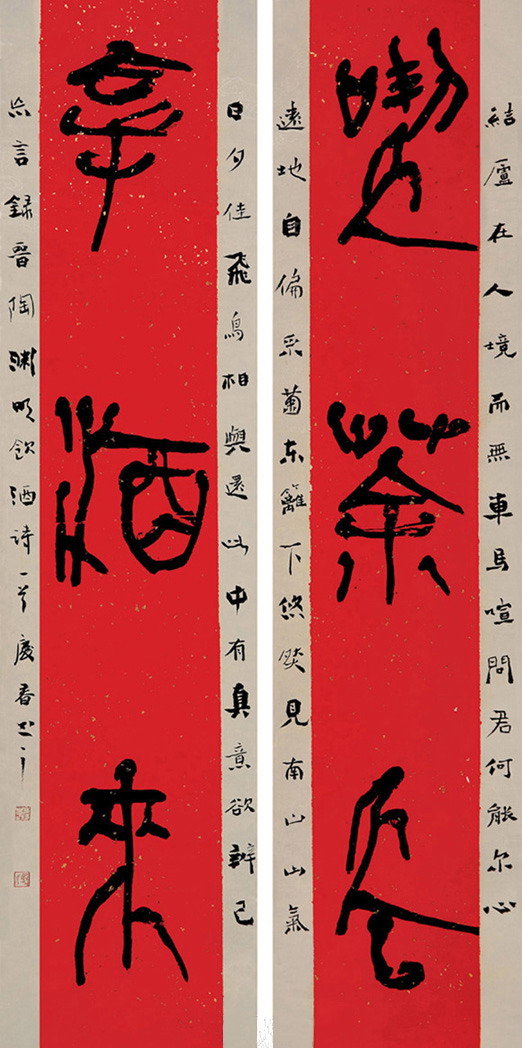 喫茶去
結廬在人境而無車馬喧問君何能尔心
遠地自偏采菊东籬下悠然見南山山氣
拿酒來
日夕佳飛鳥相與還此中有真意欲辨已
忘言録晉陶淵明飲酒詩一首慶春书